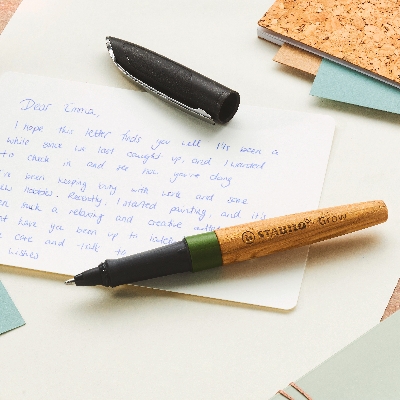 Dear Emma,
I hope this letter finds you well. It's been a
while since we last caught up, and I wanted
to check in and see how you've doing
I've been keeping busy with work and some
new hobbies. Recently, I started painting, and it's
been such a relaxing and creative
What have you been up to lately
care and talk to
wishes
STABILO Grow